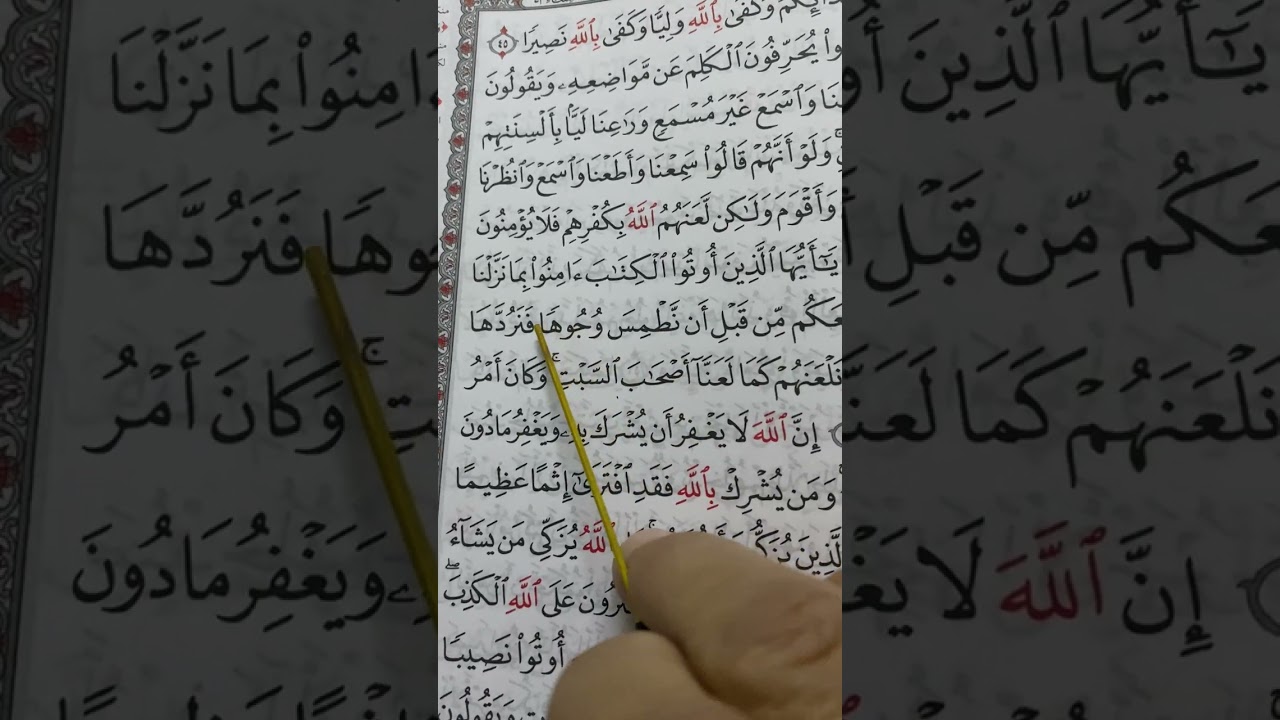 وَكَفَىٰ بِٱللَّهِ وَلِيًّا وَكَفَىٰ بِٱللَّهِ نَصِيرًا ٤٥
يُحَرِّفُونَ ٱلْكَلِمَ عَن مَّوَاضِعِهِۦ وَيَقُولُونَ
وَٱسْمَعْ غَيْرَ مُسْمَعٍ وَرَٰعِنَا لَيًّۢا بِأَلْسِنَتِهِمْ
وَلَوْ أَنَّهُمْ قَالُوا۟ سَمِعْنَا وَأَطَعْنَا وَٱسْمَعْ وَٱنظُرْنَا
وَأَقْوَمَ وَلَٰكِن لَّعَنَهُمُ ٱللَّهُ بِكُفْرِهِمْ فَلَا يُؤْمِنُونَ
يَٰٓأَيُّهَا ٱلَّذِينَ أُوتُوا۟ ٱلْكِتَٰبَ ءَامِنُوا۟ بِمَا نَزَّلْنَا
مِّن قَبْلِ أَن نَّطْمِسَ وُجُوهًا فَنَرُدَّهَا
نَلْعَنَهُمْ كَمَا لَعَنَّآ أَصْحَٰبَ ٱلسَّبْتِ ۚ وَكَانَ أَمْرُ
إِنَّ ٱللَّهَ لَا يَغْفِرُ أَن يُشْرَكَ بِهِۦ وَيَغْفِرُ مَا دُونَ
وَمَن يُشْرِكْ بِٱللَّهِ فَقَدِ ٱفْتَرَىٰٓ إِثْمًا عَظِيمًا
ٱلَّذِينَ يُزَكُّونَ ٱللَّهُ يُزَكِّى مَن يَشَآءُ
عَلَى ٱللَّهِ ٱلْكَذِبَ ۖ
أُوتُوا۟ نَصِيبًا
وَيَقُولُونَ